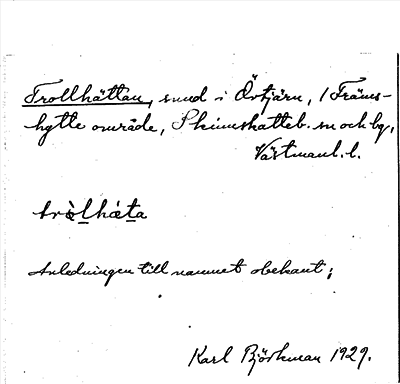 Trollhättan, sund i Övtjärn, i Främs-
hytte område, Skinnskatteb. sn och bg,
Västmanl. l.
trò̱lhæta
Anledningen till namnet obekant;
Karl Björkman 1929.